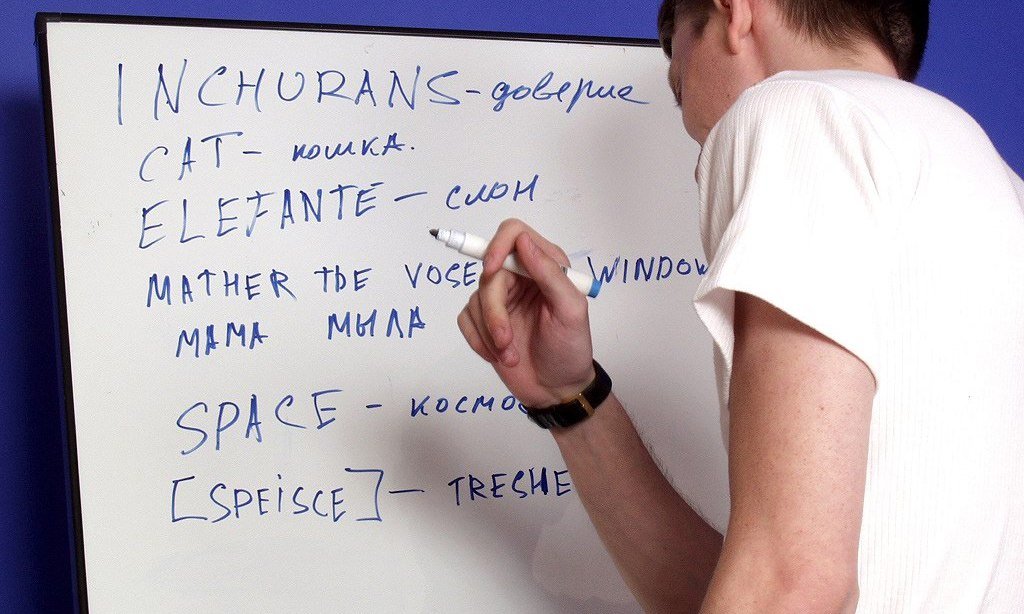 INCHURANS - доверие
CAT - кошка.
ELEFANTE - слон
MATHER THE VOSE WINDOW
МАМА МЫЛА
SPACE - космос
[SPEISCE] - TRESHE